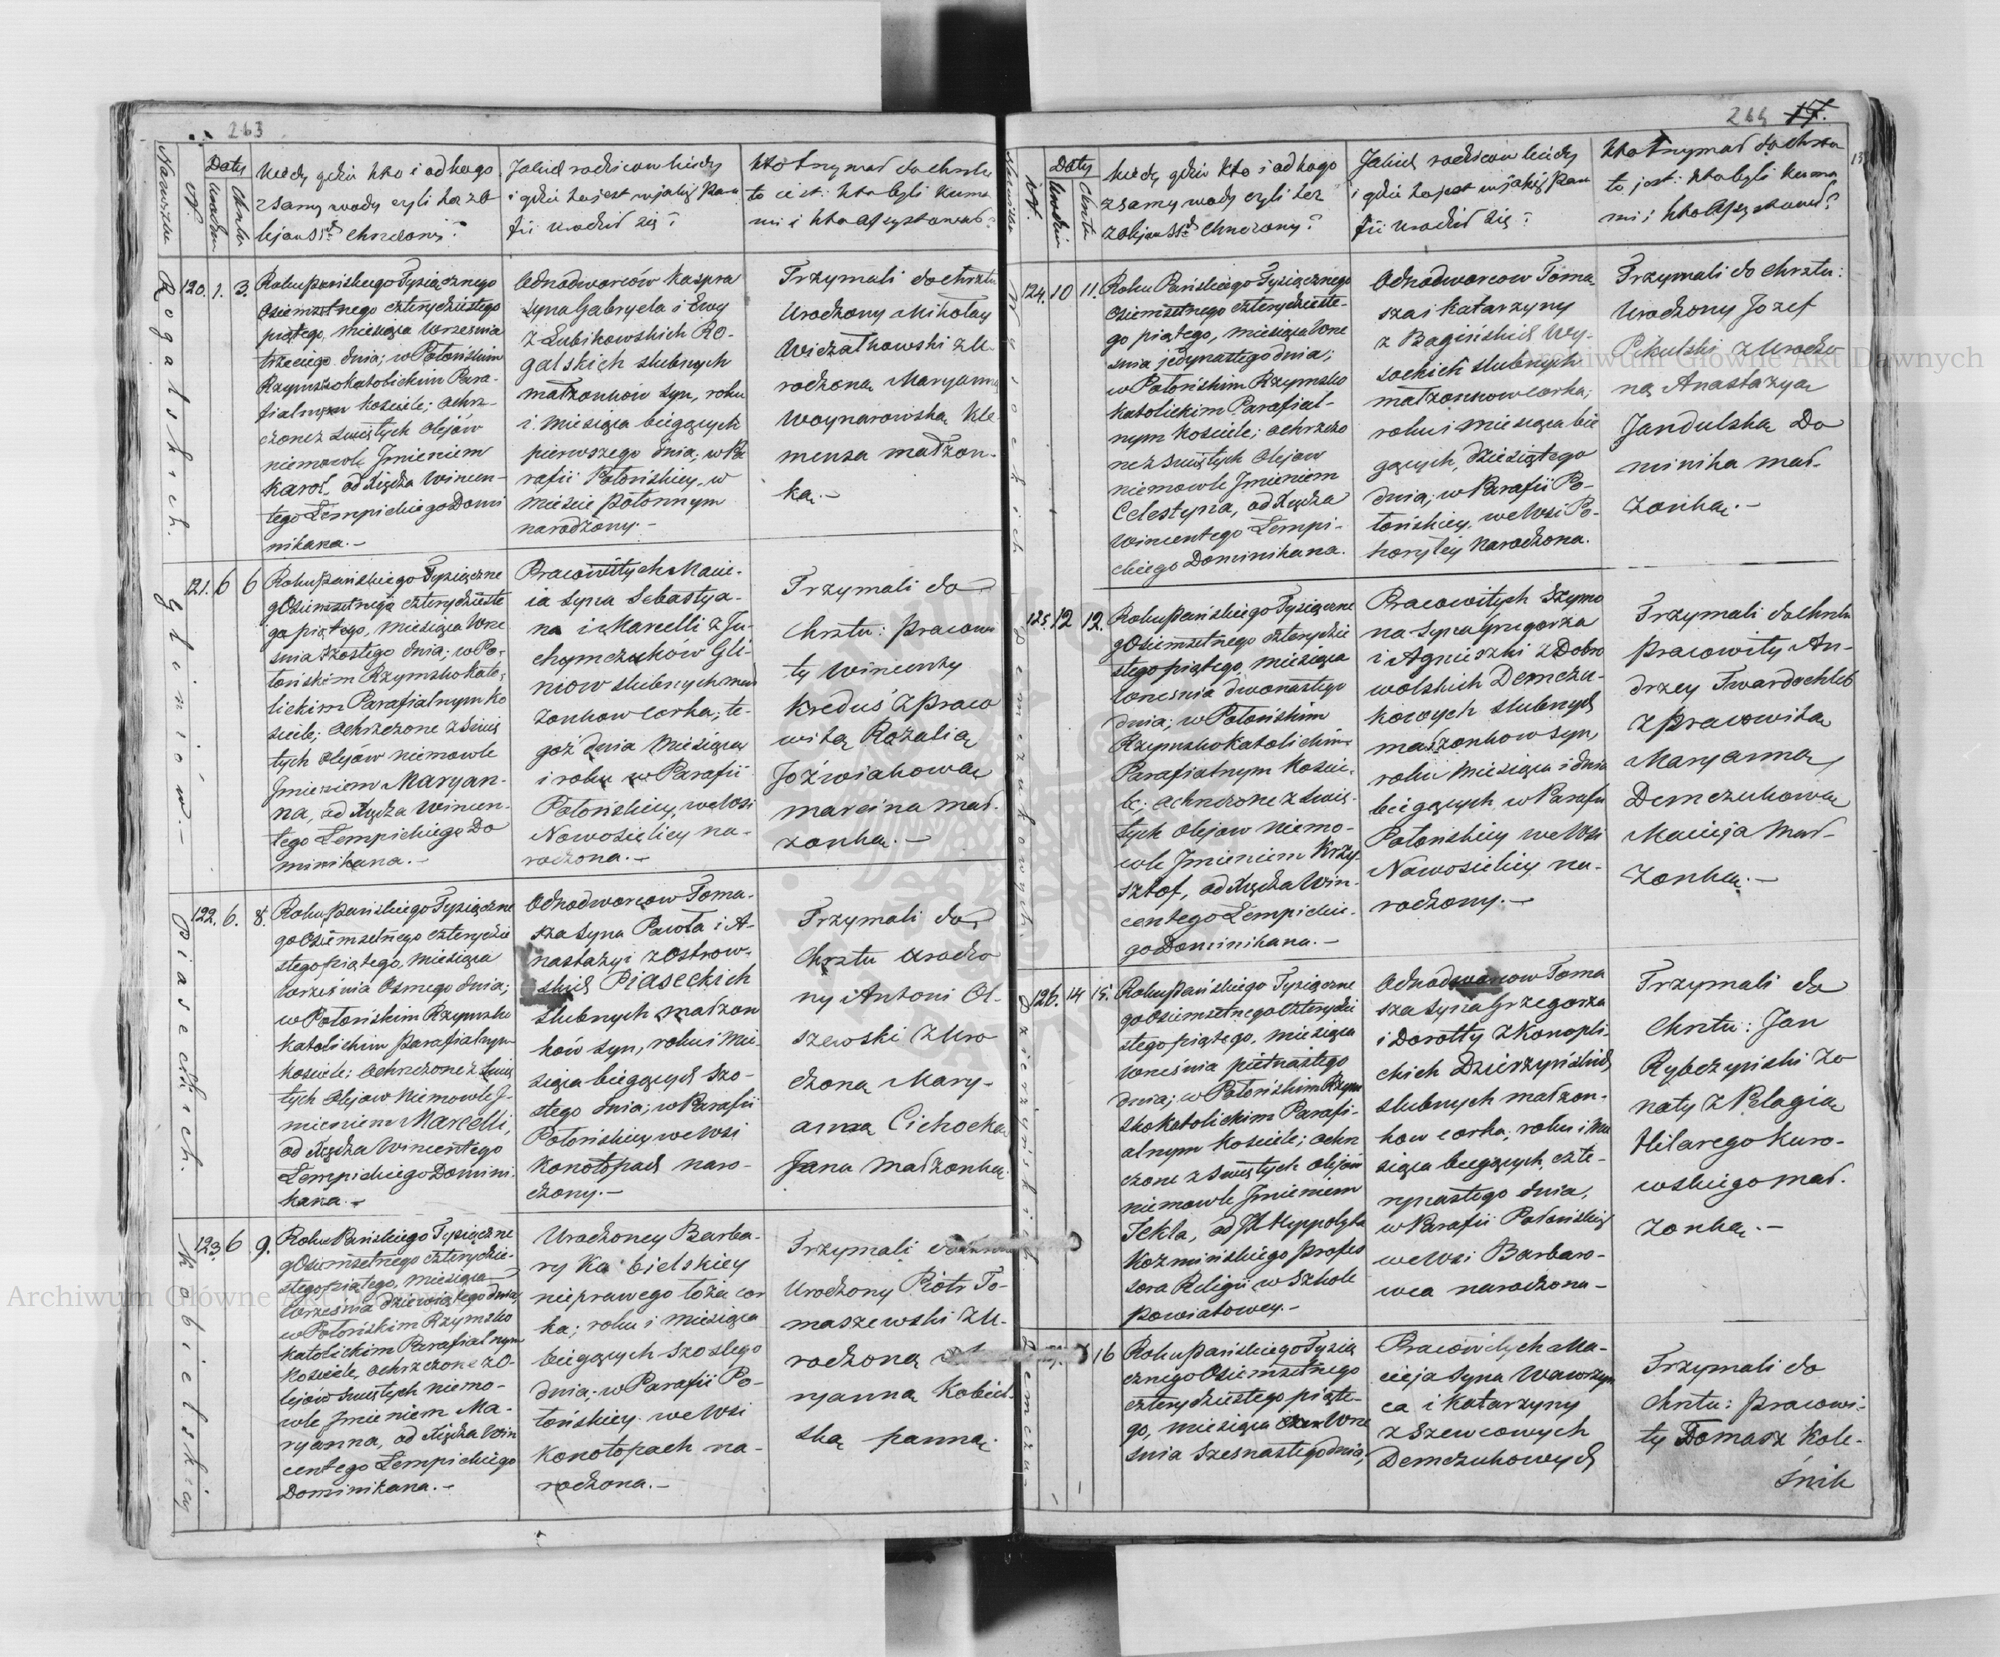 263
Nazwisko
No.
Daty
Urodzin
Chrztu
Kiedy gdzie kto i od kogo
z samy wody czyli też z O
lejow SS. chrzczony?
Jakich rodziców kiedy
i gdzie to jest w jakiej Para
fii urodził się?
Kto trzymał do chrztu
to iest: kto byli kumo
mi i kto assystował?
Rogalskich.
120. 1. 3.
Roku Pańskiego Tysiącznego
Osiemsetnego czterydziestego
piątego, miesiąca Września
trzeciego dnia; w Połońskim
Rzymsko Katolickim Para-
fialnym Kościele; ochrz-
czone z Świętych Olejów
niemowle Jmieniem
Karol, od Xiędza Wincen-
tego Łempickiego Domi
nikana.-
Odnodworców Kaspra
Syna Gabryela i Ewy
z Łubikowskich Ro-
galskich slubnych
małżonkow syn, roku
i miesiąca bieżących
pierwszego dnia; w Pa
rafii Połońskiey, w
Mieście Połonnym
narodzony.-
Trzymali do chrztu
Urodzony Mikołay
Wiczałkowski z U
rodzoną Maryanną
Woynarowską Kle
mensa małżon-
ką.-
Gliniów.-
121. 6 6
Roku Pańskiego Tysiączne
go Osiemsetnego czterydzieste
go piątego, miesiąca Wrze
śnia szóstego dnia; w Po-
łońskim Rzymsko Kato-
lickim Parafialnym Ko
ściele; ochrzczone z Świę
tych Olejów niemowle
Jmieniem Maryan-
na, od Xiędza Wincen-
tego Łempickiego Do
minikana.-
Pracowitych Macie-
ia syna Sebastya-
na i Marcelli z Ju-
chymczukow Gli-
niow slubnych mał
żonkow corka; te-
goż dnia miesiąca
i roku w Parafii
Połońskiey, we Wsi
Nowosielicy na-
rodzona.-
Trzymali do
Chrztu: Pracowi
ty Wincenty
Kreduś z Praco
witą Rozalią
Jóźwiakową
Marcina mał-
żonką.-
Piaseckich.
122. 6. 8.
Roku Pańskiego Tysiączne
go Osiemsetnego czterydzie
stego piątego, miesiąca
Września Osmego dnia;
w Połońskim Rzymsko
Katolickim Parafialnym
Kościele; ochrzczone z Świę
tych Olejow niemowle J-
mieniem Marcelli,
od Xiędza Wincentego
Łempickiego Domini-
kana.-
Odnodworcow Toma-
sza syna Pawła i A-
nastazyi z Ostrow-
skich Piaseckich
slubnych małżon
ków syn, roku i mie-
siąca bieżących szó-
stego dnia; w Parafii
Połońskiey we Wsi
Konotopach naro-
dzony.-
Trzymali do
Chrztu Urodzo
ny Antoni Ol-
szewski z Uro
dzoną Mary-
anną Cichocką
Jana małżonką.
Kobielskiey
123. 6 9.
Roku Pańskiego Tysiączne
go Osiemsetnego czterydzie-
stego piątego, miesiąca
Września dziewiątego dnia,
w Połońskim Rzymsko
Katolickim Parafialnym
Kościele, ochrzczone z O-
lejow Świętych niemo-
wle Jmieniem Ma-
ryanna, od Xiędza Win
centego Łempickiego
Dominikana.-
Urodzoney Barba-
ry Kobielskiey
nieprawego łoża cor
ka; roku i miesiąca
bieżących szóstego
dnia w Parafii Po-
łońskiey we Wsi
Konotopach na-
rodzona.-
Trzymali do
Urodzony Piotr To-
maszewski z U-
rodzoną
ryanną Kobiel-
ską panną.
264 17.
Nazwisko
No.
Daty
Urodzin
Chrztu
Kiedy gdzie kto i od kogo
z samy wody czyli też
z Olejow SS. chrzczony?
Jakich rodzicow kiedy
i gdzie to jest w jakiej Para
fii urodził się?
Kto trzymał do chrztu
to jest: kto byli kumo
mi i kto assystował?
Wysockich
124. 10 11.
Roku Pańskiego Tysiącznego
Osiemsetnego czterydzieste-
go piątego, miesiąca Wrze
śnia jedynastego dnia;
w Połońskim Rzymsko
Katolickim Parafial-
nym Kościele; ochrzczo
ne z Świętych Olejow
niemowle Jmieniem
Celestyna, od Xiędza
Wincentego Łempi-
ckiego Dominikana.
Odnodworcow Toma
sza i Katarzyny
z Bagińskich Wy-
sockich slubnych
małżonkow corka;
roku i miesiąca bie
żących, dziesiątego
dnia; w Parafii Po-
łońskiey, we Wsi Po-
horyłey narodzona.
Trzymali do chrztu:
Urodzony Jozef
Pkulski z Urodzo
ną Anastazyą
Jandulską Do
minika mał-
żonką.-
Demczukowych
125. 12 12.
Roku Pańskiego Tysiączne
go Osiemsetnego czterydzie
stego piątego, miesiąca
Września dwonastego
dnia; w Połońskim
Rzymsko Katolickim
Parafialnym Koście-
le; ochrzczone z Świę-
tych Olejow niemo-
wle Jmieniem Krzy-
sztof, od Xiędza Win-
centego Łempickie-
go Dominikana.-
Pracowitych Szymo
na syna Grygorza
i Agnieszki z Dobro
wolskich Demczu-
kowych slubnych
małżonkow syn,
roku miesiąca i dnia
bieżących w Parafii
Połońskiey we Wsi
Nowosielicy na-
rodzony.-
Trzymali do chrztu
Pracowity An-
drzey Twardochleb
z Pracowitą
Maryanną
Demczukową
Macieja mał-
żonką.-
Dzierzyńskich
126. 14 15.
Roku Pańskiego Tysiączne
go Osiemsetnego czterydzie
stego piątego, miesiąca
Września piętnastego
dnia; w Połońskim Rzym
sko Katolickim Parafi-
alnym Kościele; ochrz
czone z Świętych Olejów
niemowle Jmieniem
Tekla, od JX Hyppolyta
Koźmińskiego Profes
sora Religii w Szkole
Powiatowey.-
Odnodworcow Toma
sza syna Grzegorza
i Dorotty z Konopli-
ckich Dzierzyńskich
slubnych małżon-
kow corka, roku i mie
siąca bieżących, czte-
rynastego dnia,
w Parafii Połońskiey
we Wsi Barbaro-
wca narodzona-
Trzymali do
Chrztu: Jan
Rybczyński Zo
naty z Pelagią
Hilarego Kuro-
wskiego mał-
żonką.-
Demczu
16
Roku Pańskiego Tysią
cznego Osiemsetnego
czterydziestego piąte-
go, miesiąca Wrze
śnia szesnastego dnia,
Pracowitych Ma-
cieja syna Wawrzyn
ca i Katarzyny
z Szewcowych
Demczukowych
Trzymali do
Chrztu: Pracowi-
ty Tomasz Kole-
śnik
Archiwum Główne Akt Dawnych
Archiwum Główne Akt Dawnych